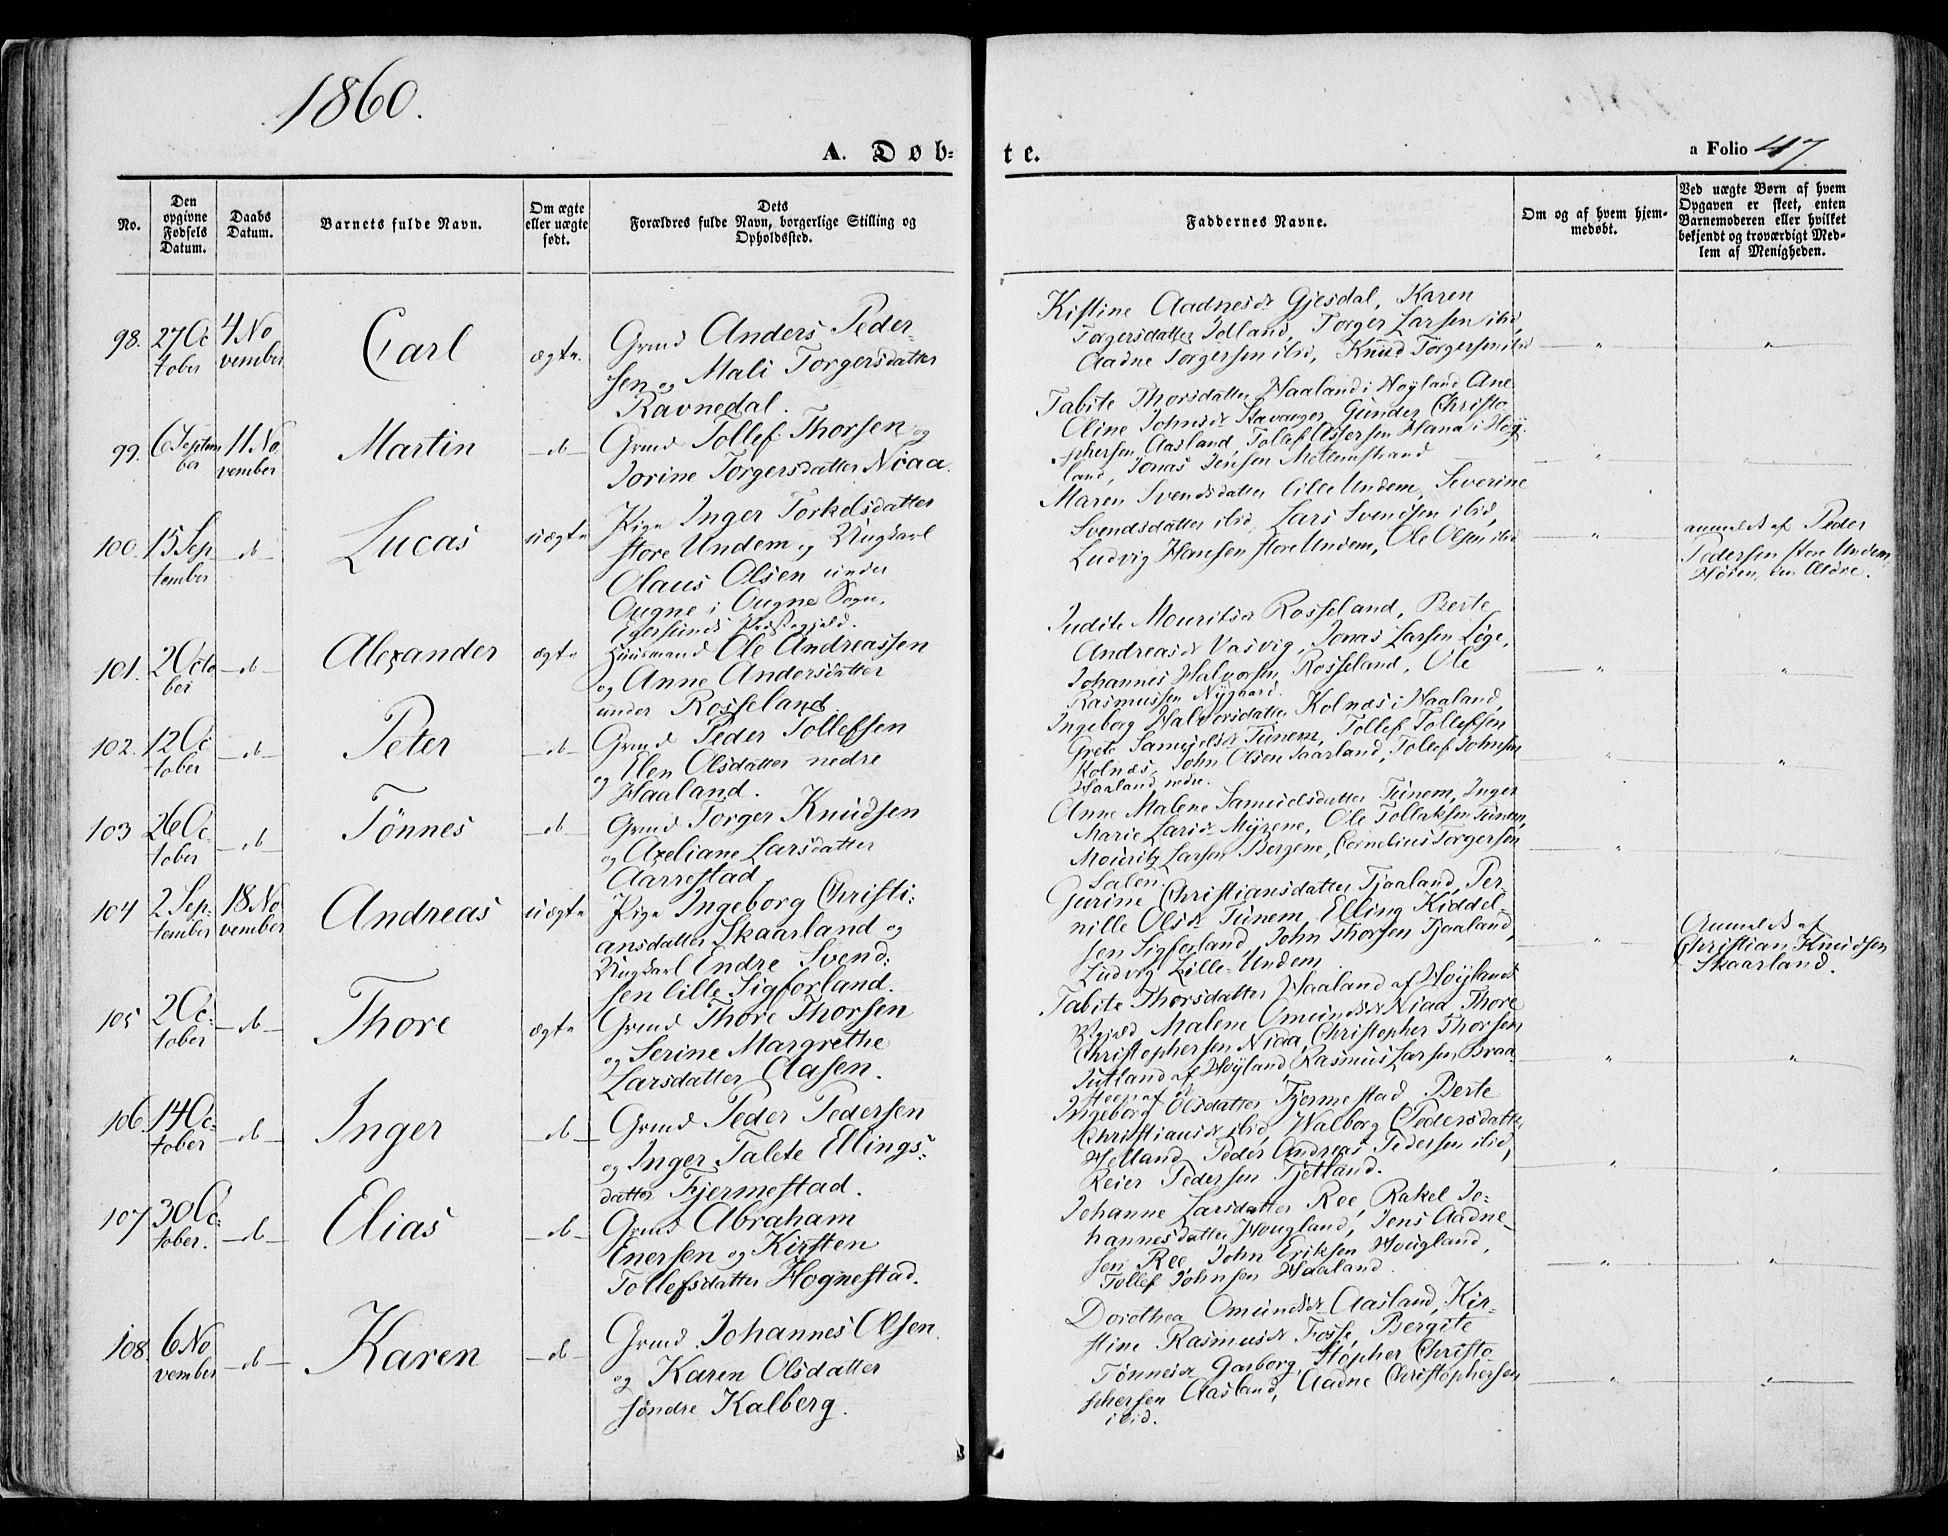 1860.
A. Døb-
te.
a Folio 47
No.
Den opgivne Fødsels Datum.
Daabs Datum.
Barnets fulde Navn.
Om ægte eller uægte født.
Dets Forældres fulde Navn, borgerlige Stilling og Opholdssted.
Faddernes Navne.
Om og af hvem hjemmedøbt.
Ved uægte Børn af hvem
Opgaven er skeet, enten
Barnemoderen eller hvilket
bekjendt og troværdigt Med-
lem af Menigheden.
98. 27 Oc
tober
4 No
vember
Carl
ægte
Grmd Anders Peder-
sen og Mali Torgersdatter
Ravnedal.
Kistine Aadnesdr Gjesdal, Karen
Torgersdatter Idland, Torger Larsen ibid,
Aadne Torgersen ibid, Knud Torgersen ibid
99. 6 Septem
ber
11 No
vember
Martin
do
Grmd Tollef Thorsen og
Jorine Torgersdatter Niaa.
Tabite Thorsdatter Haaland i Høyland Ane
Oline Johnsdr Stavanger, Gunder Christo
phersen Aasland, Tollef Assersen Hana i Høy-
land, Jonas Jensen
100. 15 Sep
tember
do
Lucas
uægte
Pige Inger Torkelsdatter
store Undem og Ungkarl
Olaus Olsen under
Ougne i Ougne Sogn,
Egersunds Præstegjeld.
Maren Svendsdatter lille Undem, Severine
Svendsdatter ibid, Lars Svendsen ibid,
Ludvig Hansen store Undem, Ole Olsen ibid
anmeldt af Peder
Pedersen store Undem
den Ældre.
101. 2 Octo
ber
do
Alexander
ægte
Huusmand Ole Andreassen
og Anne Andersdatter
under Rosseland
Judite Mouritsdr Rosseland, Berte
Andreasdr Vasvig, Jonas Larsen Løge,
Johannes Halvorsen Rosseland, Ole
Rasmussen Nygaard.
102. 12 Oc
tober
do
Peter
do
Grmd Peder Tollefsen
og Elen Olsdatter nedre
Haaland.
Ingeborg Halvorsdatter Kolnæs i Haaland,
Grete Samuelsdr Tunem, Tollef Tollefsen
Kolnæs, John Olsen Saarland, Tollef Johnsen
Haaland nedre.
103 26 Oc
tober
do
Tønnes
do
Grmd Torger Knudsen
og Axeliane Larsdatter
Aarrestad
Anne Malene Samuelsdatter Tunem, Inger
Marie Larsdr Myrene, Ole Tollaksen Tunem,
Mouritz Larsen Bergene, Cornelius Torgersen
Salen.
104 2 Sep-
tember
18 No
vember
Andreas
uægte
Pige Ingeborg Christi-
ansdatter Skaarland og
Ungkarl Endre Svend-
sen lille Sigforland.
Gurine Christiansdatter Tjaaland, Per-
nille Olsdr Tunem, Elling Kiddel-
sen Sigforland, John Thorsen Tjaaland,
Ludvig Lille-Undem
Anmeldt af
Christian Knudsen
Skaarland.
105 2 Oc-
tober
do
Thore
ægte
Grmd Thore Thorsen
og Serine Margrethe
Larsdatter Aasen.
Tabite Thorsdatter Haaland af Høylands
Pgjeld Malene Omundsdr Niaa Thore
Christophersen Niaa, Christopher Thorsen
Jutland af Høyland, Rasmus Larsen Braa-
106. 14 Oc-
tober
do
Inger
do
Grmd Peder Pedersen
og Inger Talete Ellings-
datter Fjermestad.
Ingeborg Olsdatter Fjermestad Berte
Christiansdr ibid, Walborg Pedersdatter
Helland, Peder Andreas Pedersen ibid,
Reier Pedersen Tjetland.
107 30 Oc-
tober.
do
Elias
do
Grmd Abraham
Enersen og Kirsten
Tollefsdatter Hognestad.
Johanne Larsdatter Ree, Rakel Jo-
hannesdatter Hougland, Jens Aadne-
sen Ree, John Eriksen Hougland,
Tollef Johnsen Haaland.
108. 6 No
vember
do
Karen
do
Grmd Johannes Olsen
og Karen Olsdatter
søndre Kalberg.
Dorothea Omundsdr Aasland, Kir-
stine Rasmusdr Fosse, Bergite
Tønnesdr Garborg, Stopher Christo
phersen Aasland, Aadne Christophersen
ibid.